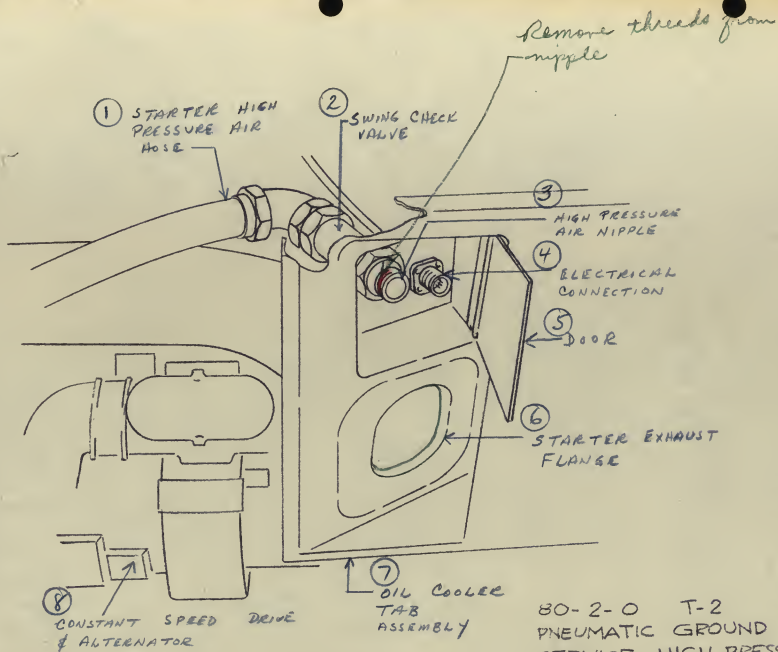 Remove threads from
nipple
1 STARTER HIGH
PRESSURE AIR
HOSE
2 SWING CHECK
VALVE
3
HIGH PRESSURE
AIR NIPPLE
4
ELECTRICAL
CONNECTION
5
DOOR
6
STARTER EXHAUST
FLANGE
7
OIL COOLER
TAB
ASSEMBLY
8
CONSTANT SPEED DRIVE
& ALTERNATOR
80-2-0 T-2
PNEUMATIC GROUND
SERVICE HIGH PRESS